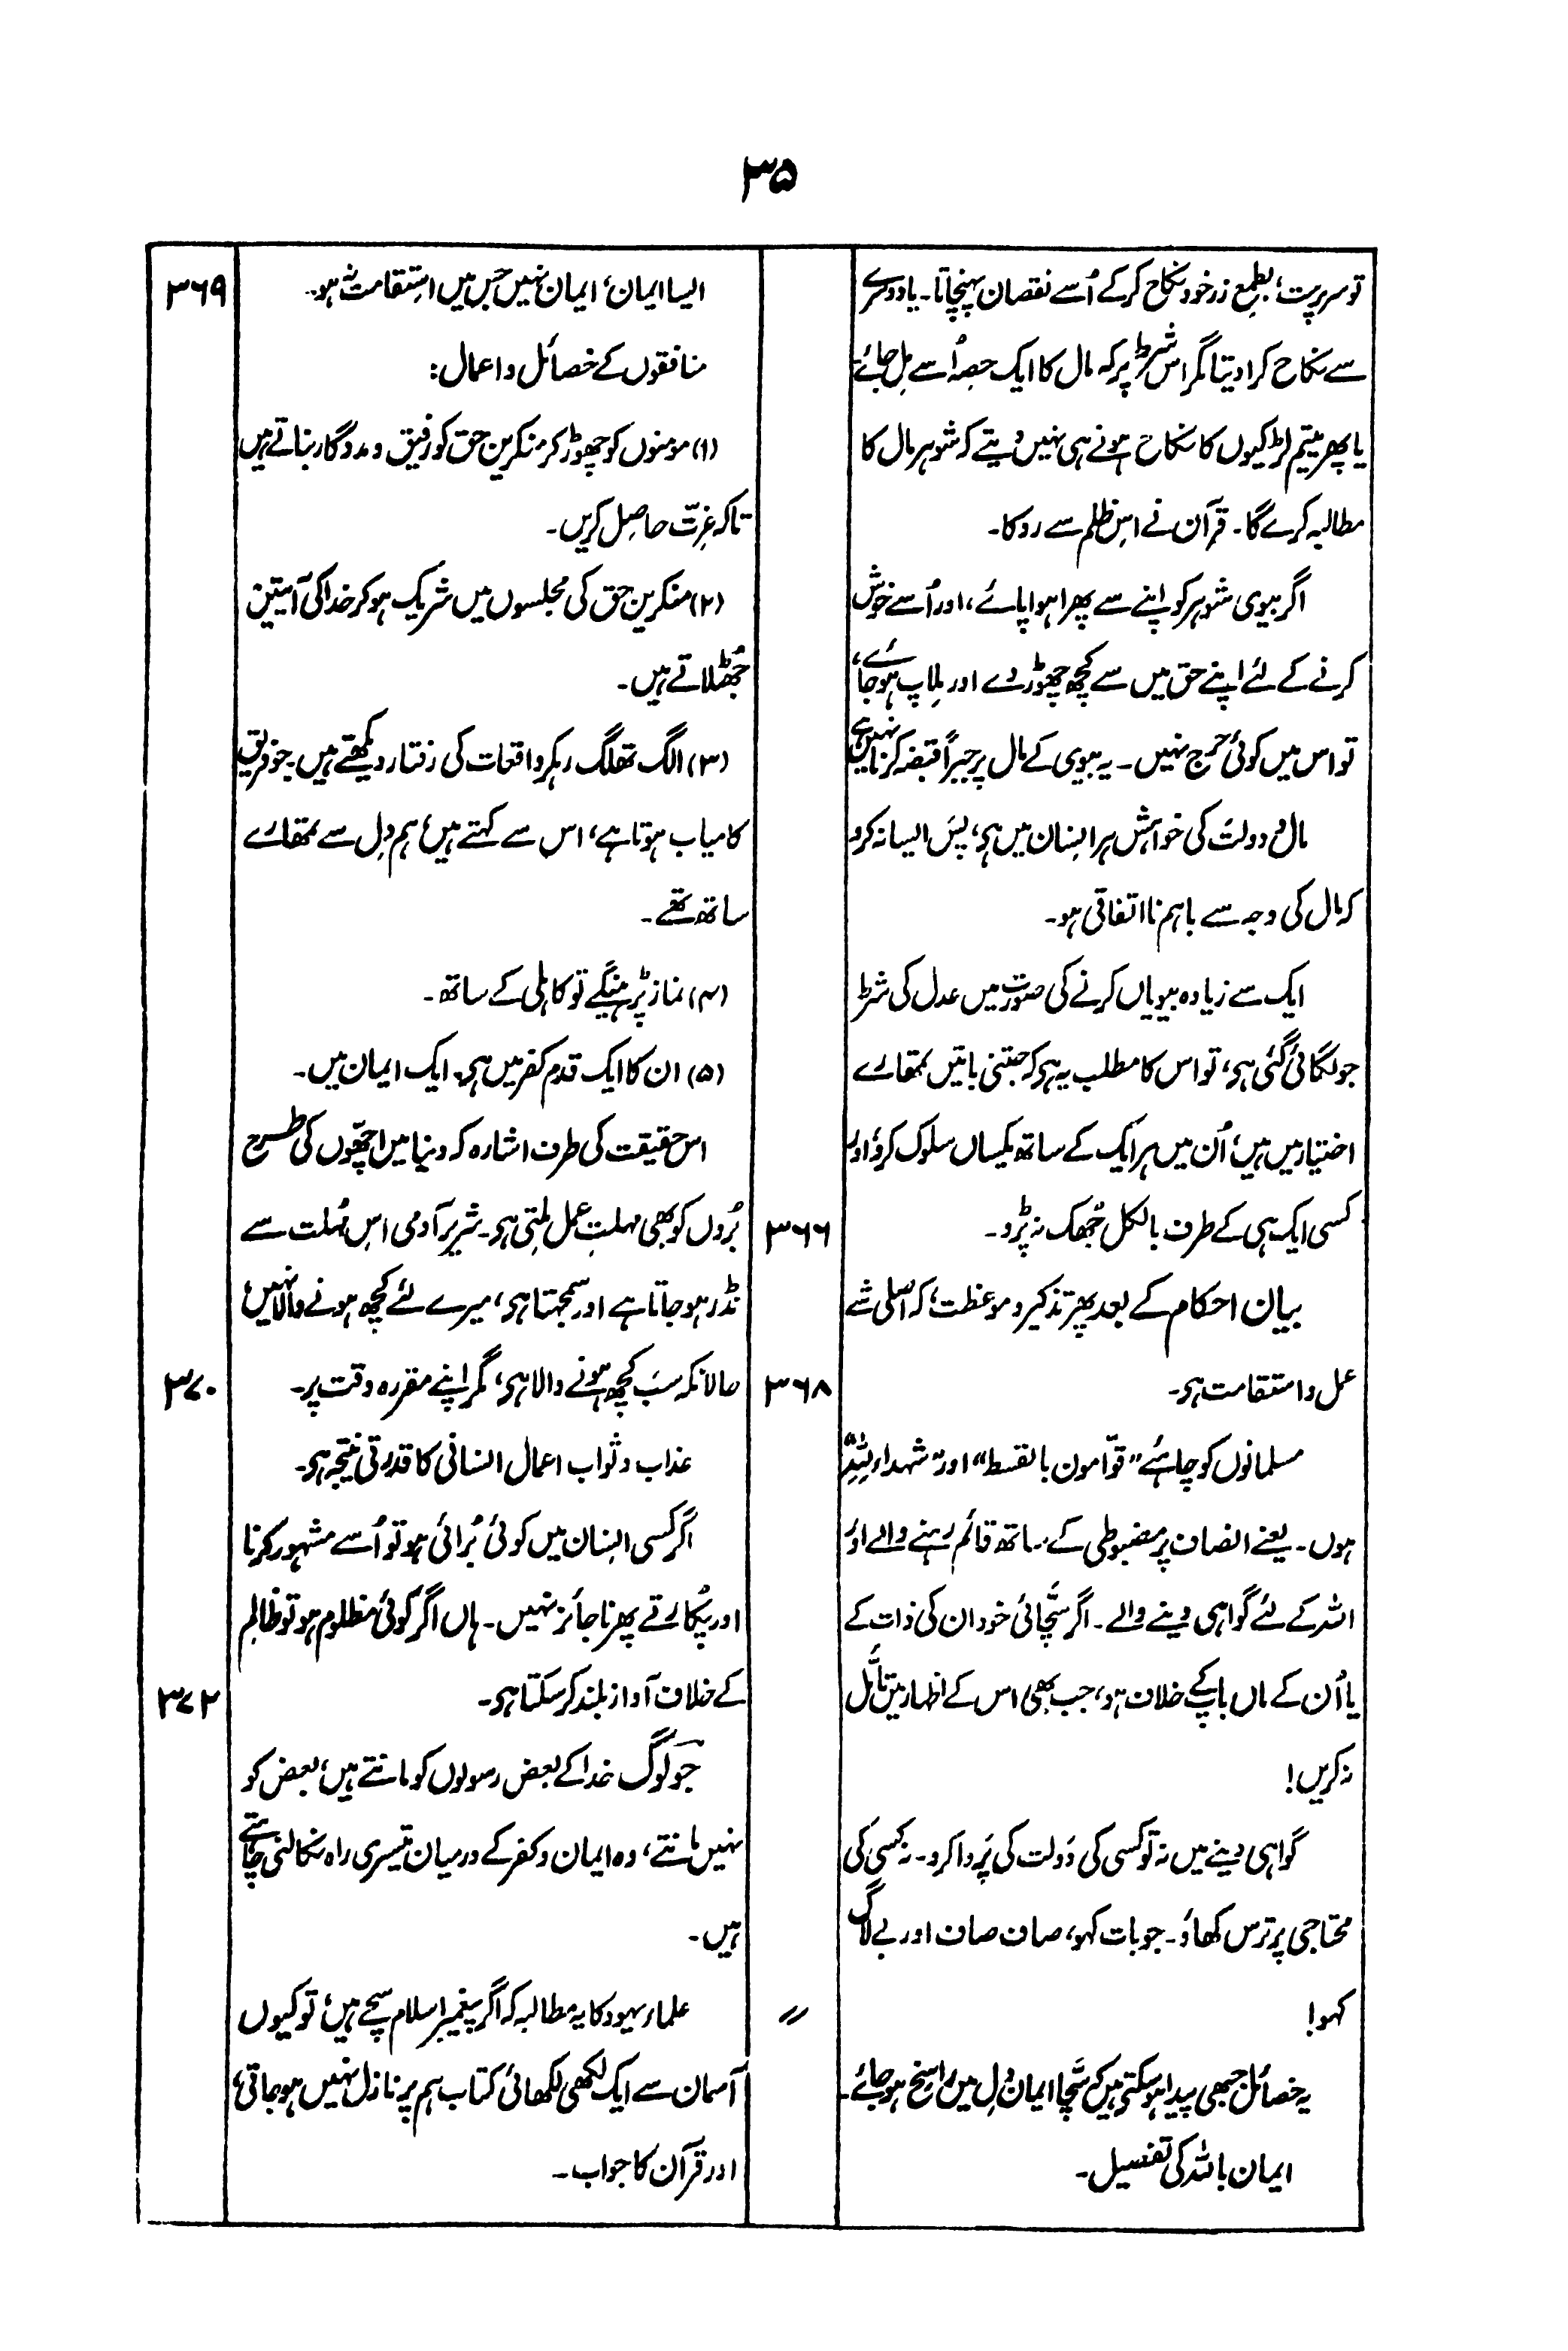 ۳۵
تو سرپرست، بطمع زر خود نکاح کرکے اُسے نقصان پہنچاتا۔ یا دوسرے
سے نکاح کرا دیتا مگر اس شرط پر کہ مال کا ایک حصہ اُسے مل جائے۔
یا پھر یتیم لڑکیوں کا نکاح ہونے ہی نہیں دیتے کہ شوہر مال کا
مطالبہ کرے گا۔ قرآن نے اس ظلم سے روکا۔
اگر بیوی شوہر کو اپنے سے پھرا ہوا پائے، اور اُسے خوش
کرنے کے لئے اپنے حق میں سے کچھ چھوڑ دے اور ملاپ ہو جائے،
تو اس میں کوئی حرج نہیں۔ یہ بیوی کے مال پر جبراً قبضہ کرنا نہیں ہے
مال و دولت کی خواہش ہر انسان میں ہے، پس ایسا نہ کرو
کہ مال کی وجہ سے باہم نا اتفاقی ہو۔
ایک سے زیادہ بیویاں کرنے کی صورت میں عدل کی شرط
جو لگائی گئی ہے، تو اس کا مطلب یہ ہے کہ جتنی باتیں تمھارے
اختیار میں ہیں، اُن میں ہر ایک کے ساتھ یکساں سلوک کرو، اور
کسی ایک ہی کے طرف بالکل جُھک نہ پڑو۔ ۳۶۶
بیان احکام کے بعد پھر تذکیر و موعظت، کہ اصلی شے
عمل و استقامت ہے۔ ۳۶۸
مسلمانوں کو چاہئے "قوّامون بالقسط" اور "شہداء للہ"
ہوں۔ یعنے انصاف پر مضبوطی کے ساتھ قائم رہنے والے اور
اللہ کے لئے گواہی دینے والے۔ اگر سچّائی خود ان کی ذات کے
یا اُن کے ماں باپ کے خلاف ہو، جب بھی اس کے اظہار میں تامّل
نہ کریں!
گواہی دینے میں نہ تو کسی کی دَولت کی پَروا کرو۔ نہ کسی کی
محتاجی پر ترس کھاؤ۔ جو بات کہو، صاف صاف اور بے لاگ
کہو! 〃
یہ خصائل جبھی پیدا ہو سکتی ہیں کہ سچّا ایمان دِل میں راسخ ہو جائے۔
ایمان باللہ کی تفصیل۔
ایسا ایمان، ایمان نہیں جس میں استقامت نہ ہو۔ ۳۶۹
منافقوں کے خصائل و اعمال:
(۱) مومنوں کو چھوڑ کر منکرین حق کو رفیق و مددگار بناتے ہیں
تاکہ عزّت حاصل کریں۔
(۲) منکرین حق کی مجلسوں میں شریک ہو کر خدا کی آیتیں
جُھٹلاتے ہیں۔
(۳) الگ تھلگ رہکر واقعات کی رفتار دیکھتے ہیں۔ جو فریق
کامیاب ہوتا ہے، اس سے کہتے ہیں، ہم دِل سے تمھارے
ساتھ تھے۔
(۴) نماز پڑہینگے تو کاہلی کے ساتھ۔
(۵) ان کا ایک قدم کفر میں ہے۔ ایک ایمان میں۔
اس حقیقت کی طرف اشارہ کہ دنیا میں اچھّوں کی طرح
بُروں کو بھی مہلتِ عمل ملتی ہے۔ شریر آدمی اس مُہلت سے
نڈر ہو جاتا ہے اور سمجھتا ہے، میرے لئے کچھ ہونے والا نہیں
حالانکہ سب کچھ ہونے والا ہے، مگر اپنے مقررہ وقت پر۔ ۳۷۰
عذاب و ثواب اعمال انسانی کا قدرتی نتیجہ ہے۔
اگر کسی انسان میں کوئی بُرائی ہو تو اُسے مشہور کرنا
اور پُکارتے پھرنا جائز نہیں۔ ہاں اگر کوئی مظلوم ہو تو ظالم
کے خلاف آواز بلند کر سکتا ہے۔ ۳۷۲
جو لوگ خدا کے بعض رسولوں کو مانتے ہیں، بعض کو
نہیں مانتے، وہ ایمان و کفر کے درمیان تیسری راہ نکالنی چاہتے
ہیں۔
علماء یہود کا یہ مطالبہ کہ اگر پیغمبر اسلام سچے ہیں، تو کیوں
آسمان سے ایک لکھی لکھائی کتاب ہم پر نازل نہیں ہو جاتی،
اور قرآن کا جواب۔